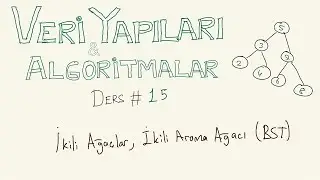 VERİ YAPILARI
&
ALGORİTMALAR
DERS # 15
İkili Ağaçlar, İkili Arama Ağacı (BST)
5
3 7
2 4 6 8